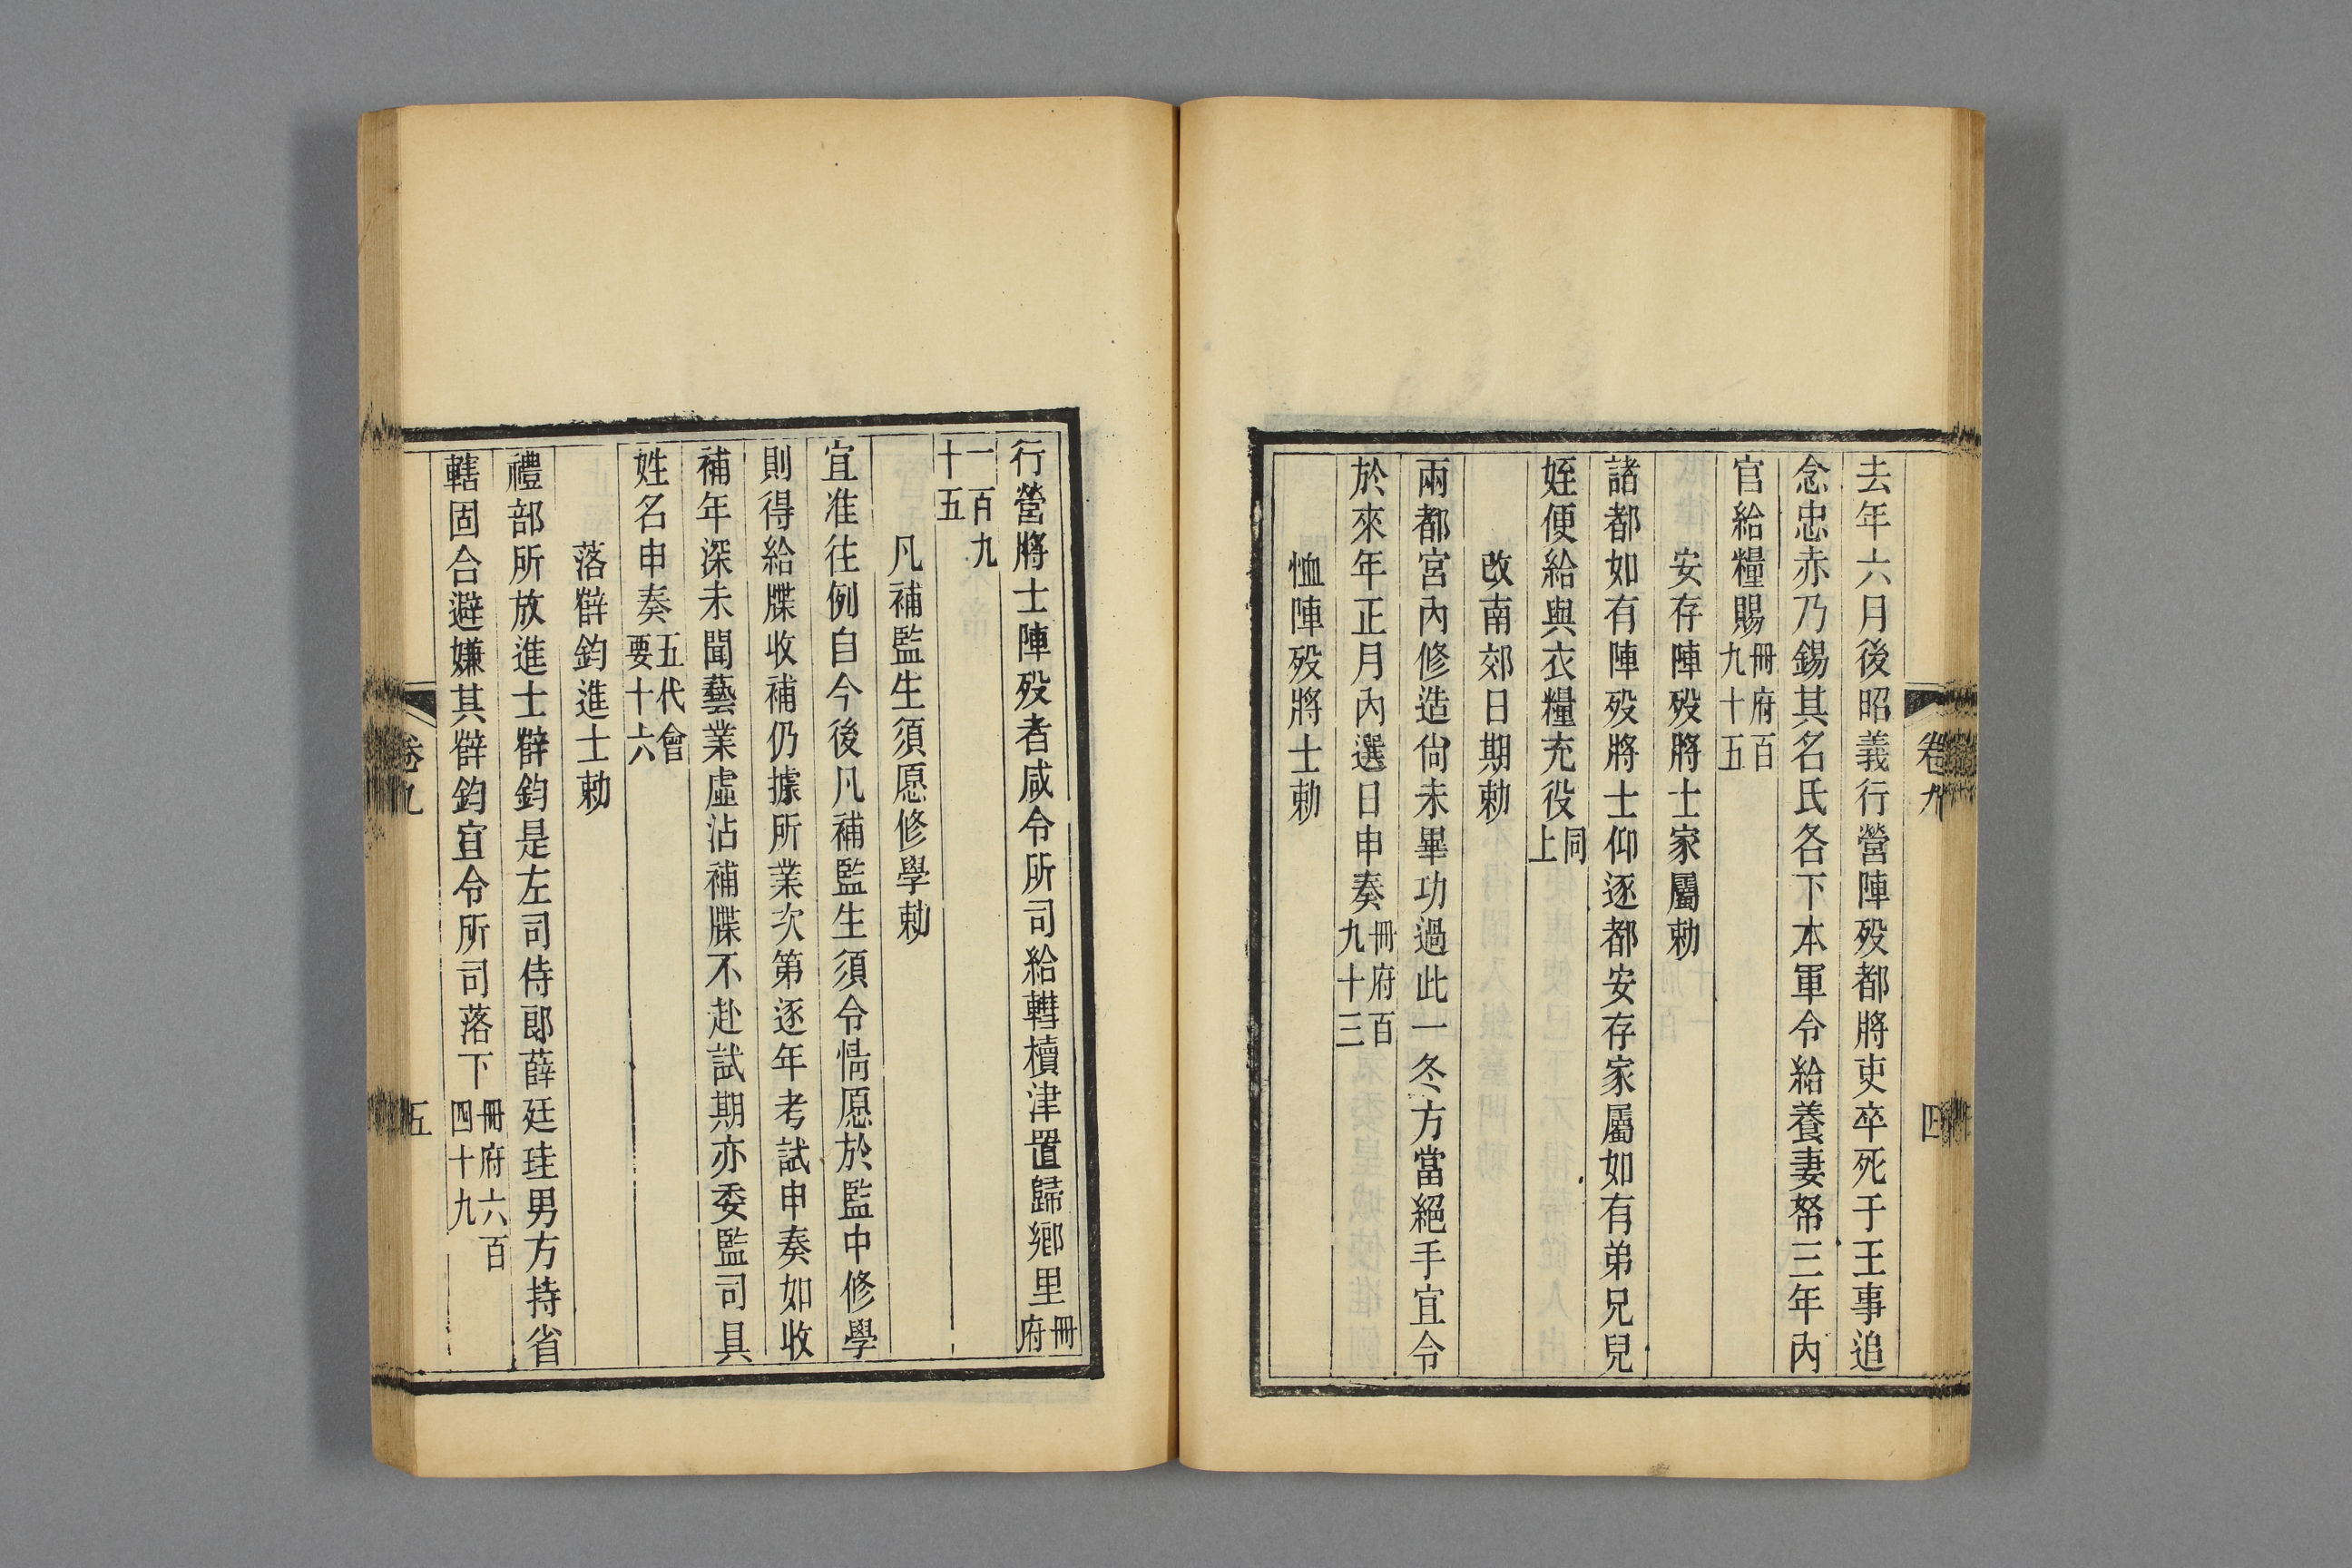 去年六月後昭義行營陣歿都將吏卒死于王事追
念忠赤乃錫其名氏各下本軍令給養妻孥三年內
官給糧賜冊府百九十五
安存陣歿將士家屬勅
諸都如有陣歿將士仰逐都安存家屬如有弟兄兒
姪便給與衣糧充役同上
改南郊日期勅
兩都宮內修造尙未畢功過此一冬方當絕手宜令
於來年正月內選日申奏冊府百九十三
恤陣歿將士勅
卷九
四
行營將士陣歿者咸令所司給轊櫝津置歸鄉里冊府
一百九十五
凡補監生須愿修學勅
宜准往例自今後凡補監生須令情愿於監中修學
則得給牒收補仍據所業次第逐年考試申奏如收
補年深未聞藝業虛沾補牒不赴試期亦委監司具
姓名申奏五代會要十六
落辥鈞進士勅
禮部所放進士辥鈞是左司侍郎薛廷珪男方持省
轄固合避嫌其辥鈞宜令所司落下冊府六百四十九
卷九
五